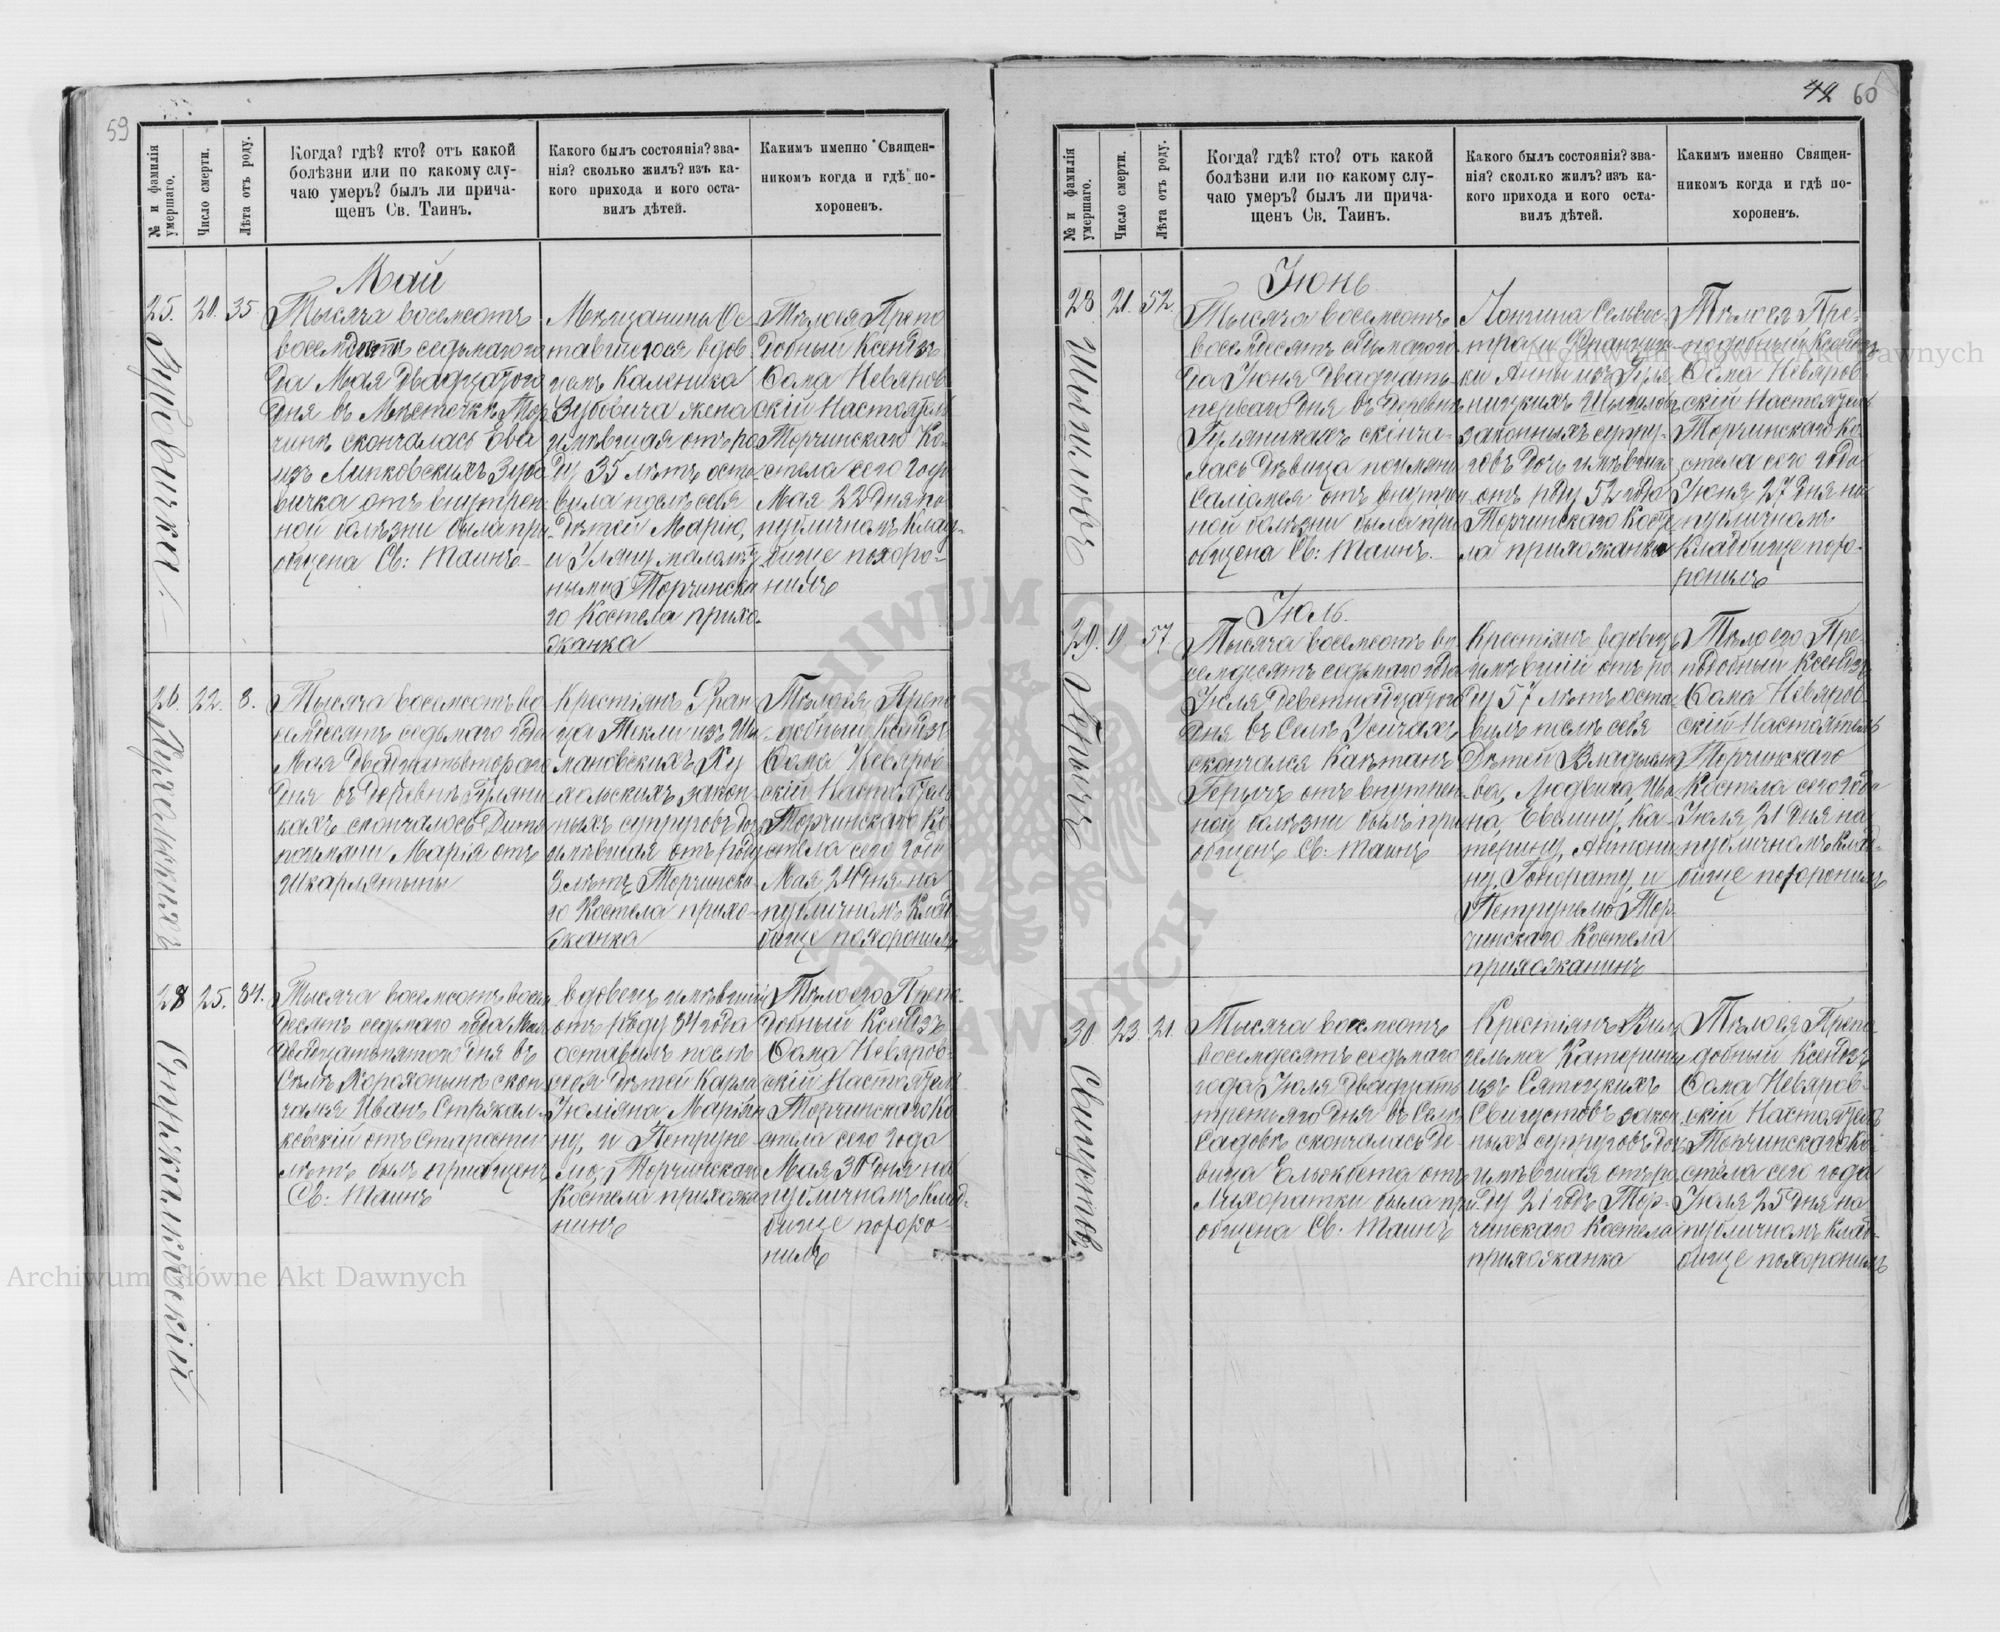 59
№ и фамилія умершаго.
Число смерти.
Лѣта отъ роду.
Когда? гдѣ? кто? отъ какой
болѣзни или по какому слу-
чаю умеръ? былъ ли прича-
щенъ Св. Таинъ.
Какого былъ состоянія? зва-
нія? сколько жилъ? изъ ка-
кого прихода и кого оста-
вилъ дѣтей.
Какимъ именно Священ-
никомъ когда и гдѣ по-
хороненъ.
Май
25.
20.
35
Тысяча восемсотъ
восемдесятъ седьмаго го
да Мая двадцатого
дня въ Мѣстечкѣ Тор
чинѣ скончалась Ева
изъ Липковскихъ Зубо
вичка отъ внутрен
ной болѣзни была прі
общена Св: Таинъ
Мѣщанины Ос
тавшогося вдов
цемъ Каленика
Зубовича жена
имѣвшая отъ ро
ду 35 лѣтъ оста
вила послѣ себя
дѣтей Марію,
и Уляну
ными Торчинска
го Костела прихо-
жанка
Тѣло ея Препо
добный Ксендзъ
Ѳома Невяров
скій Настоятель
Торчинскаго Ко-
стела сего года
Мая 22 дня на
публичномъ клад-
бище похоро-
нилъ
26.
22.
8.
Тысяча восемсотъ во
семдесятъ седьмаго года
Мая двадцатьвтораго
дня въ деревнѣ Гуляни
кахъ скончалось Дитя
поимяни Марія отъ
Шкарлятыны
Крестіянъ Фран
ца Текли изъ Ши
мановскихъ Ху
хольскихъ закон
ныхъ супруговъ дочъ
имѣвшая отъ роду
лѣтъ Торчинска
го Костела прихо-
жанка
Тѣло ея Препо
добный Ксендзъ
Ѳома Невяров
скій Настоятель
Торчинскаго Ко
стела сего года
Мая 24 дня на
публичномъ клад
бище похоронилъ
28
25.
84.
Тысяча восемсотъ восем
десятъ седьмаго года Мая
двадцатьпятого дня въ
Селѣ Хорохорынѣ скон
чался Иванъ Стржал
ковскій отъ старости
лѣтъ былъ пріобщенъ
Св: Таинъ
вдовецъ имѣвшій
отъ роду 84 года
оставилъ послѣ
себя дѣтей Карла
Юліяна Маріян
ну, и Петруне
лю, Торчинскаго
Костела прихожа
нинъ
Тѣло его Препо-
добный Ксендзъ
Ѳома Невяров-
скій Настоятель
Торчинскаго Ко
стела сего года
Мая 30 дня на
публичномъ клад-
бище похоро-
нилъ
42 60
№ и фамилія умершаго.
Число смерти.
Лѣта отъ роду.
Когда? гдѣ? кто? отъ какой
болѣзни или по какому слу-
чаю умеръ? былъ ли прича-
щенъ Св. Таинъ.
Какого былъ состоянія? зва-
нія? сколько жилъ? изъ ка-
кого прихода и кого оста-
вилъ дѣтей.
Какимъ именно Священ-
никомъ когда и гдѣ по-
хороненъ.
Іюнь
28
21.
52.
Тысяча восемсотъ
восемдесятъ седьмаго го
да Іюня двадцать
перваго дня въ деревнѣ
Гуляникахъ скінча-
лась дѣвица поимяни
Саліомея отъ внутрен
ной болѣзни была прі
общена Св: Таинъ.
Лонгина Сельвес-
тра и Францишки
ки Анны изъ
законныхъ супру-
говъ дочъ имѣвшая
отъ роду 52 года
Торчинскаго Косте
ла прихожанка
Тѣло ея Пре-
подобный Ксендзъ
Ѳома Невяров-
скій Настоятель
Торчинскаго Ко
стела сего года
Іюня 27 дня на
публичномъ
кладбище похо-
ронилъ
Іюль.
29.
19
57
Тысяча восемсотъ во
семдесятъ седьмаго года
Іюля деветнадцатого
дня въ Селѣ Усичахъ
скончался Каетанъ
Герычъ отъ внутрен
ной болѣзни былъ прі
общенъ Св: Таинъ
Крестіянъ вдовецъ
имѣвшій отъ ро
ду 57 лѣтъ оста
вилъ послѣ себя
дѣтей Владысла
ва, Людвика, Ива
на, Евелину, Ка-
терину, Антони
ну, Гонорату, и
Петрунелю Тор
чинскаго Костела
прихожанинъ
Тѣло его Пре-
подобный Ксендзъ
Ѳома Невяров
скій Настоятель
Торчинскаго
Костела сего года
Іюля 21 дня на
публичномъ клад-
бище похоронилъ
30
23.
21.
Тысяча восемсотъ
восемдесятъ седьмаго
года Іюля двадцать
третьяго дня въ Селѣ
Садовѣ скончалась Де-
вица Ельжбета отъ
Лихоратки была прі
общена Св: Таинъ
Крестіянъ Виль
гельма Катерины
изъ Сятецкихъ
Свигустовъ закон
ныхъ супруговъ дочъ
имѣвшая отъ ро
ду 21 годъ Тор-
чинскаго Костела
прихожанка
Тѣло ея Препо-
добный Ксендзъ
Ѳома Невяров-
скій Настоятель
Торчинскаго Ко
стела сего года
Іюля 25 дня на
публичномъ клад-
бище похоронилъ
Зубовичка.
Стржалковскій
Герычъ
Свигустовъ
Archiwum Główne Akt Dawnych
Archiwum Główne Akt Dawnych